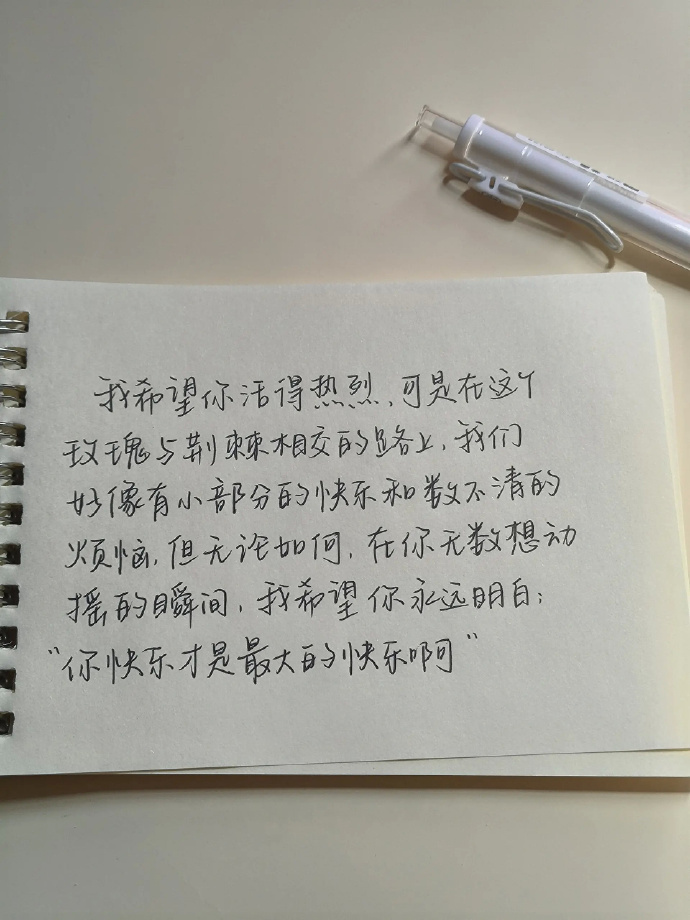 我希望你活得热烈，可是在这个
玫瑰与荆棘相交的路上，我们
好像有小部分的快乐和数不清的
烦恼，但无论如何，在你无数想动
摇的瞬间，我希望你永远明白：
“你快乐才是最大的快乐啊”